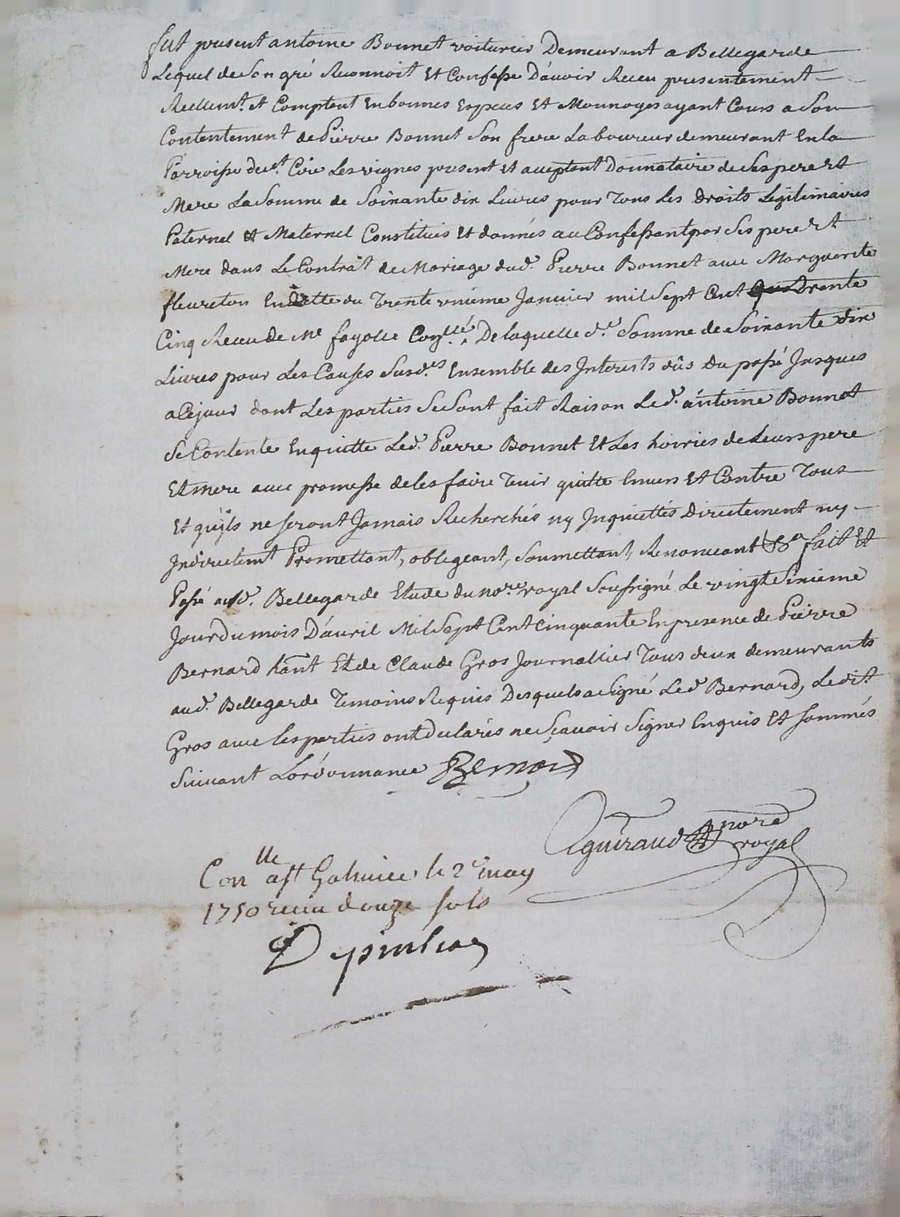 fut present antoine Bonnet voiturier Demeurant a Bellegarde
Lequel de Son gré Reconnoit Et Confesse D'avoir Receu presentement
Reellemt. et Comptent En bonnes Especes Et Monnoyes ayant Cours a Son
Contentement de Pierre Bonnet Son frere Laboureur demeurant En la
Parroisse de st. Cire Les vignes present Et aceptent Donnataire de Ses pere Et
Mere La Somme de Soixante dix Livres pour Tous Les Droits Legitimaires
Paternel Et Maternel Constitués Et donnés au Confessant par Ses pere Et
Mere dans Le Contrat de Mariage dud. Pierre Bonnet avec Marguerite
fleureton En datte du Trente unieme Janvier mil Sept Cent Trente
Cinq Receu de Me fayolle Conllé. De laquelle de. Somme de Soixante dix
Livres pour Les Causes Susd.es Ensemble des Interests dûs Du passé Jusques
a Ce jour dont Les parties Se Sont fait Raison Led. antoine Bonnet
Se Contente En quitte Led. Pierre Bonnet Et Les hoiries de Leurs pere
Et mere avec promesse de les faire Tenir quitte Envers Et Contre Tous
Et qu'ils ne Seront Jamais Recherchés ny Inquiettés Directement ny
Indirectemt Promettant, obligeant, Soumettant, Renonceant &a fait Et
Passé aud. Bellegarde Etude du nore. royal Soussigné Le vingt Sixieme
Jour du mois D'avril Mil Sept Cent Cinquante En presence de Pierre
Bernard hant Et de Claude Gros Journallier Tous deux demeurants
aud. Bellegarde Temoins Requis Desquels a Signé Led. Bernard, Le dit.
Gros avec les parties ont declarés ne Sçavoir Signer Enquis Et Sommés
Suivant L'ordonnance Bernard
Aguiraud nore
royal
Conlle a st Galmier le 2e may
1750 receu douze sols